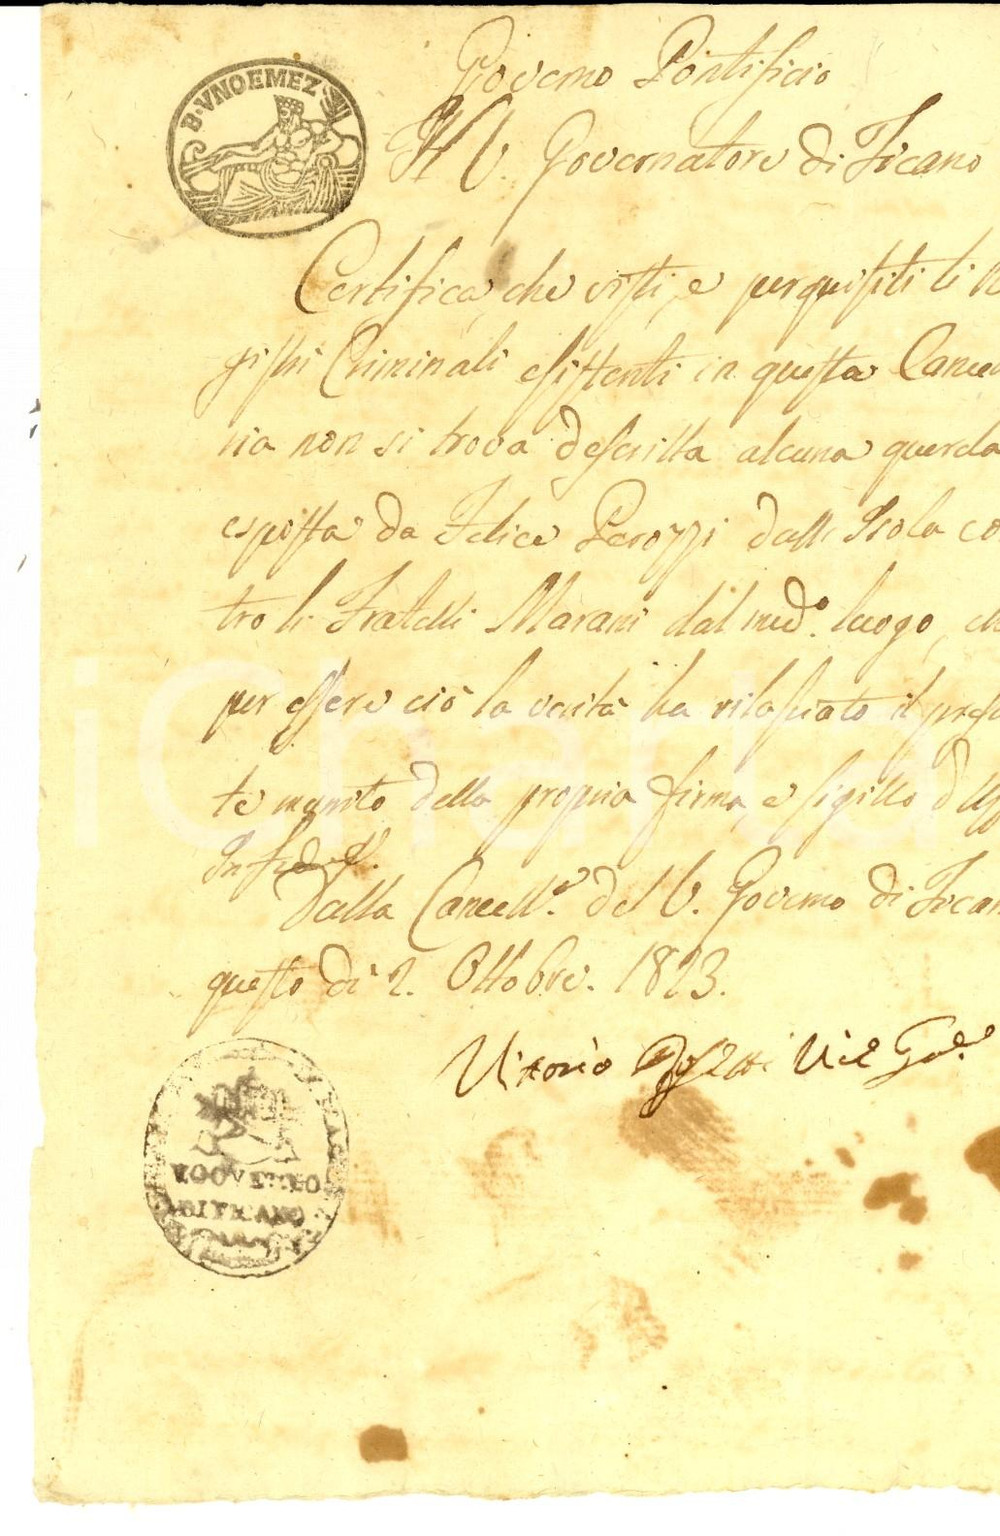 B. VNOEMEZ
Governo Pontificio
Il V. Governatore di Ficano
Certifica, che visti, e perquisiti li Re
gistri Criminali esistenti in questa Cancel
ria non si trova descritta alcuna querela
esposta da Felice Perozzi dall' Isola co
tro li Fratelli Marani dal med.o luogo, ch
per essere ciò la verità ha rilasciato il prese
te munito della propria firma, e sigillo d'Uf
In fede
Dalla Cancell.a del V. Governo di Fican
questo dì 2. Ottobre. 1823.
Vittorio Vice Gov.e
V GOVERNO
DI FICANO
iCharta